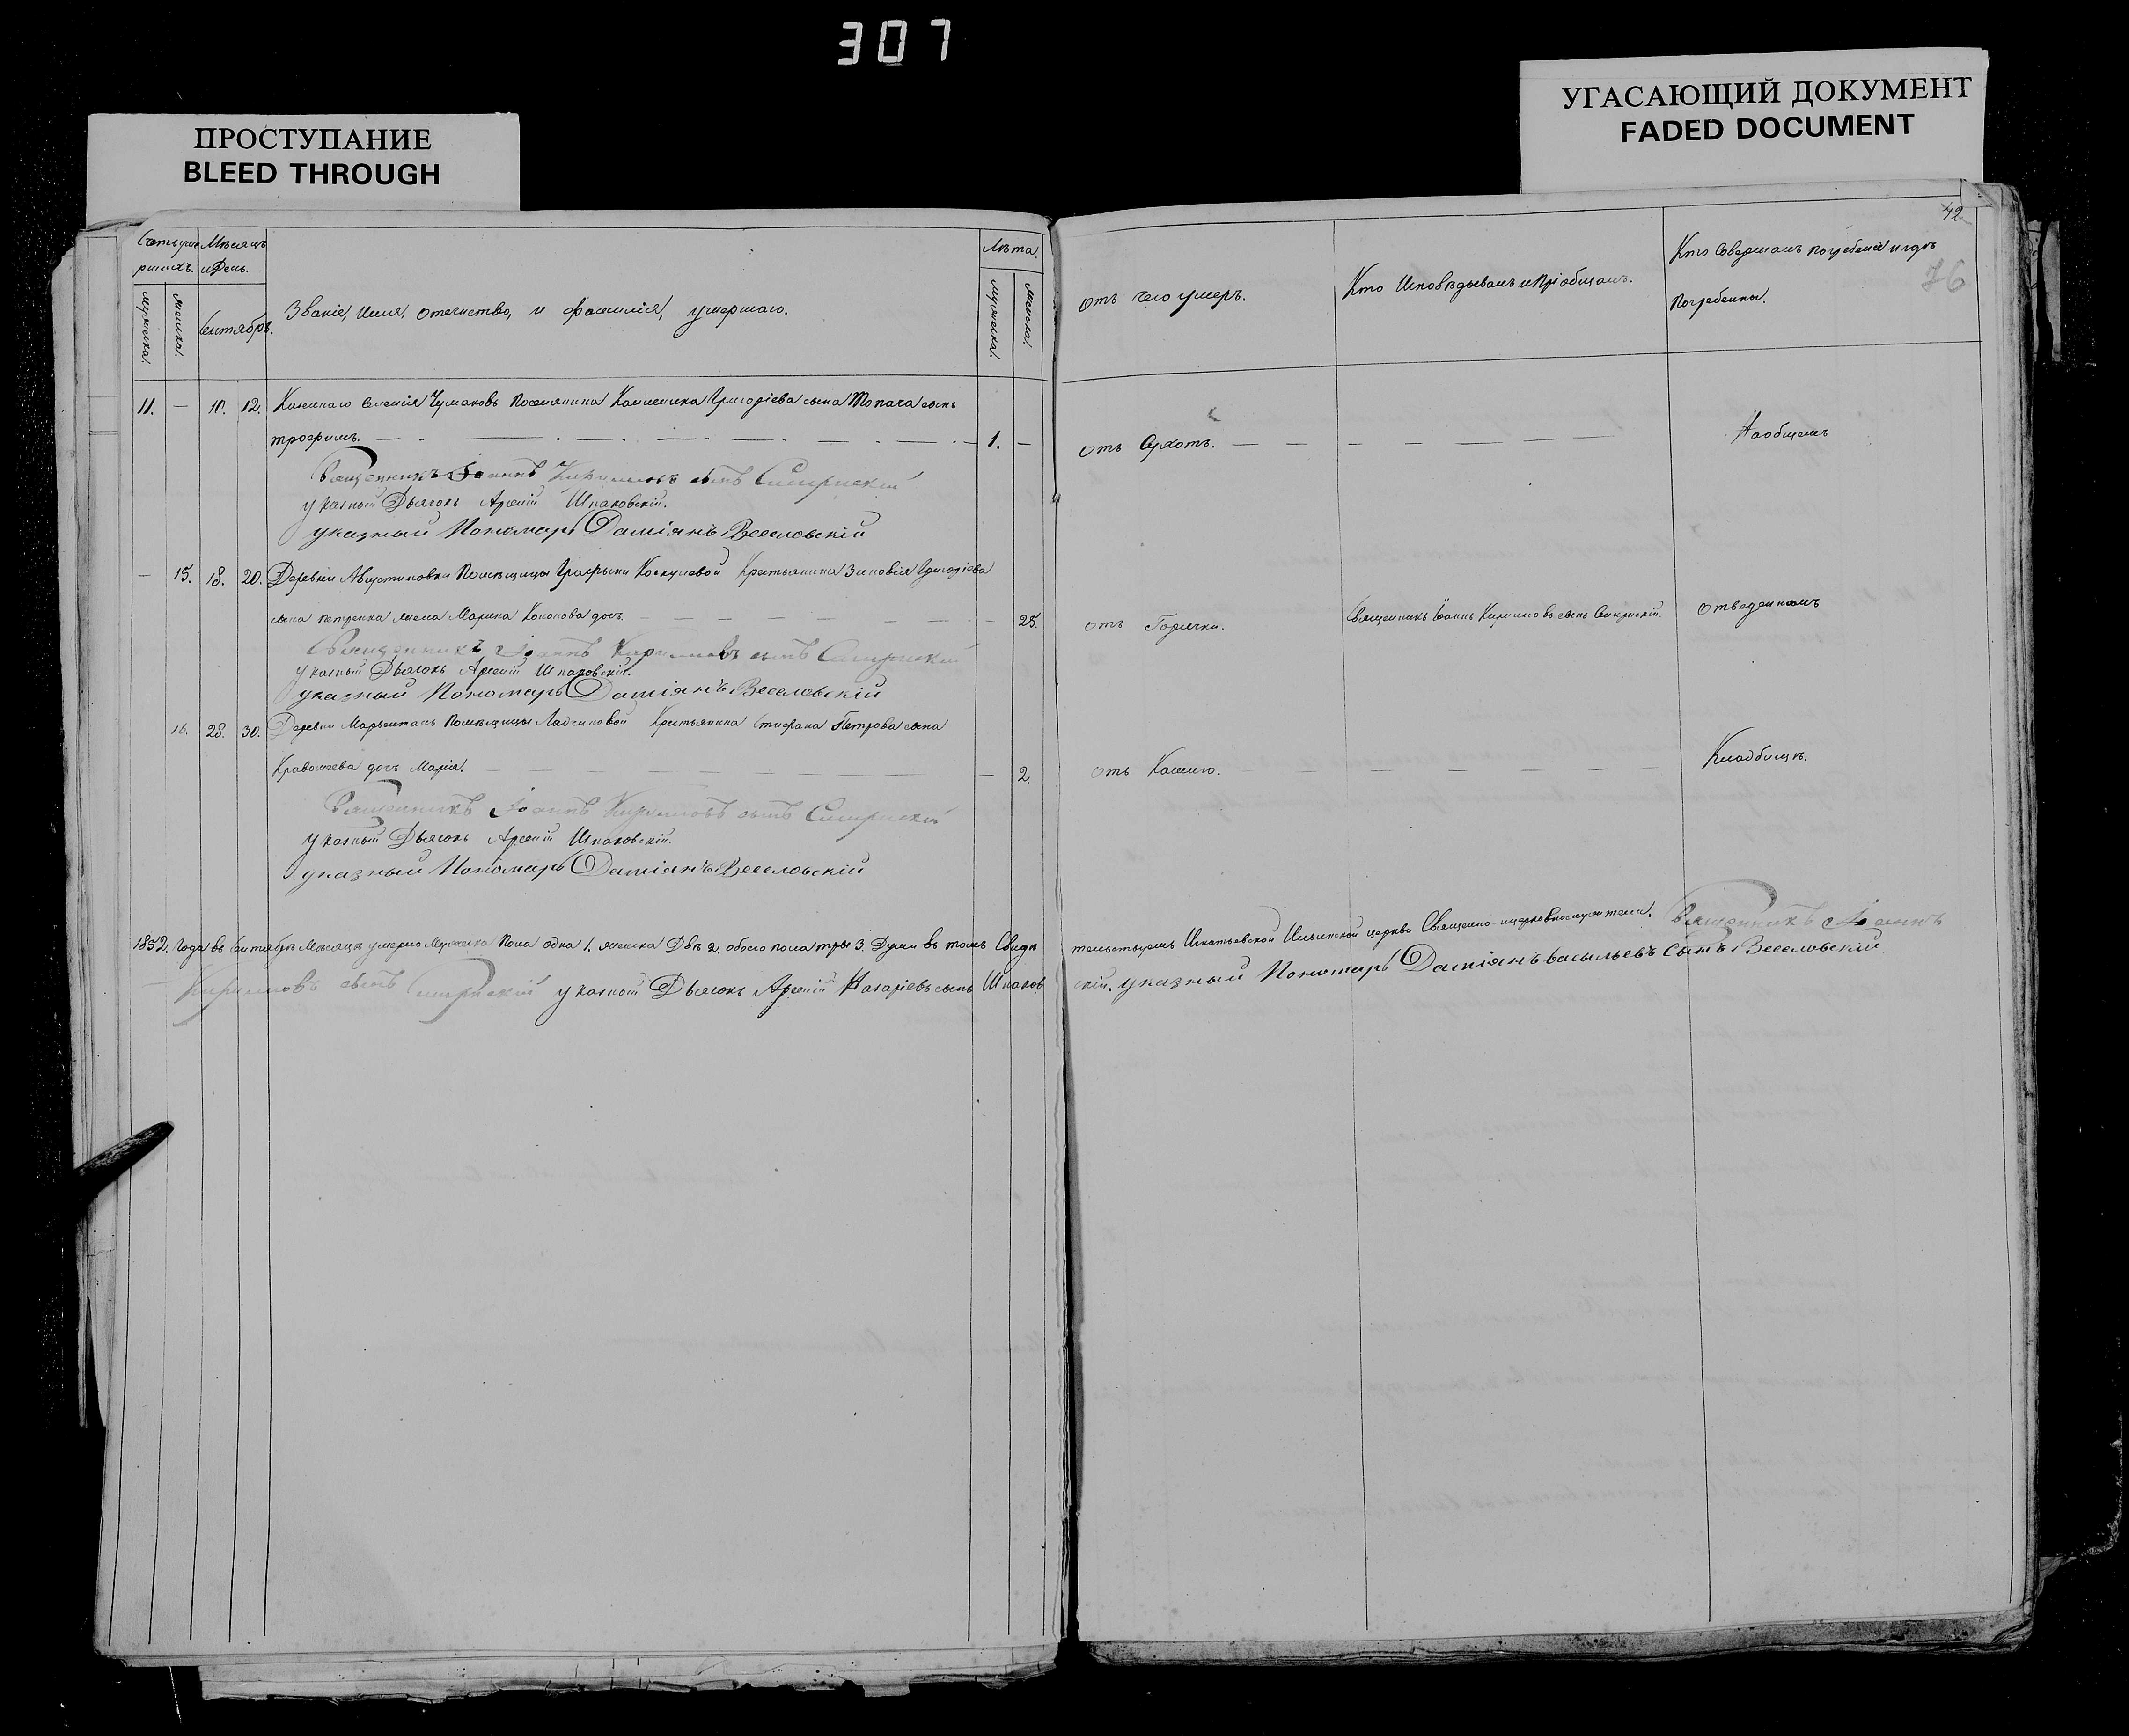 307
ПРОСТУПАНИЕ
BLEED THROUGH
УГАСАЮЩИЙ ДОКУМЕНТ
FADED DOCUMENT
42
76
Мѣсяцъ
и День.
Сентябрь.
Званіе, Имя, Отечество, и фамилія, умершаго.
Лѣта.
Отъ чего умеръ.
Кто Исповѣдывалъ и Пріобщалъ.
Кто Совершалъ погребеніе и гдѣ
Погребены.
мужеска. женска. мужеска. женска.
11. — 10. 12. Казеннаго Селенія Чумаковъ Поселянина Григоріева сына Топача сынъ
трофимъ. — 1. — отъ Сухотъ. — На общемъ
Священникъ Іоаннъ Кириловъ сынъ
указный Дьячокъ Арсеній Шпаковскій.
указный Пономарь Даміянъ Веселовскій
— 15. 18. 20. Деревни Августиновки Помѣщицы Графыни Крестьянина Зиновія Григоріева
сына петренка жена Марина Кононова дочь. — 25. отъ Горячки. Священникъ Іоаннъ Кириловъ сынъ отведенномъ
Священникъ Іоаннъ Кириловъ сынъ
указный Дьячокъ Арсеній Шпаковскій.
указный Пономарь Даміянъ Веселовскій
16. 28. 30. Деревни Помѣщицы Крестьянина Стефана Петрова сына
дочь Марія. — 2. отъ Кашлю. — Кладбищѣ.
Священникъ Іоаннъ Кириловъ сынъ
указный Дьячокъ Арсеній Шпаковскій.
указный Пономарь Даміянъ Веселовскій
1852. Года въ Сентябрѣ Мѣсяцѣ умерло Мужеска Пола одна 1. женска Двѣ 2. обоего пола три 3. Души въ томъ Свидѣтельствуемъ Игнатьевской Ильинской церкви Священно-церковнослужители. Священникъ Іоаннъ
Кириловъ сынъ указный Дьячокъ Арсеній Назаріевъ сынъ Шпаковскій. указный Пономарь Даміянъ Васильевъ Сынъ Веселовскій